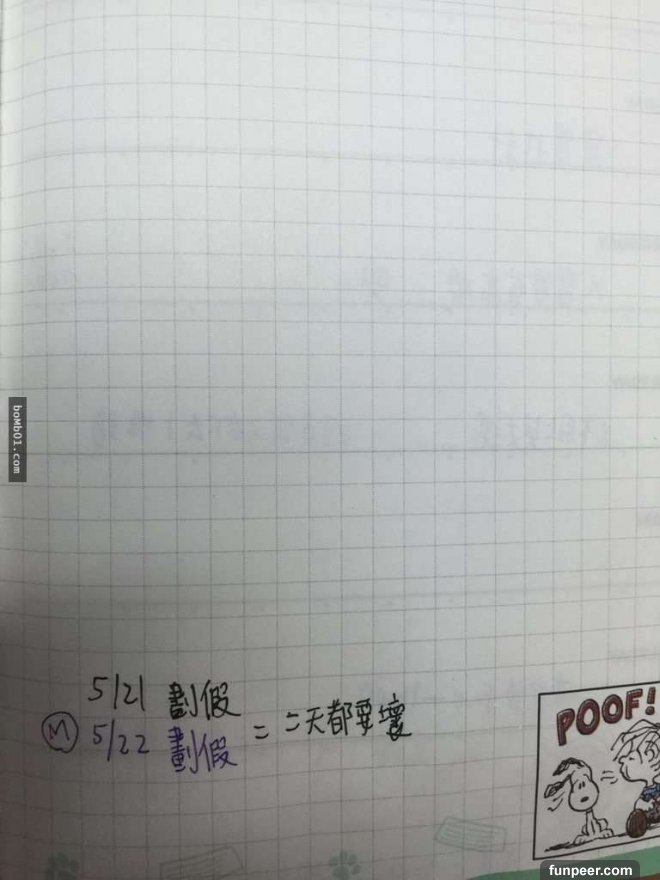 boMb01.com
5/21 劃假
M 5/22 劃假 = 二天都要壞
POOF!
funpeer.com